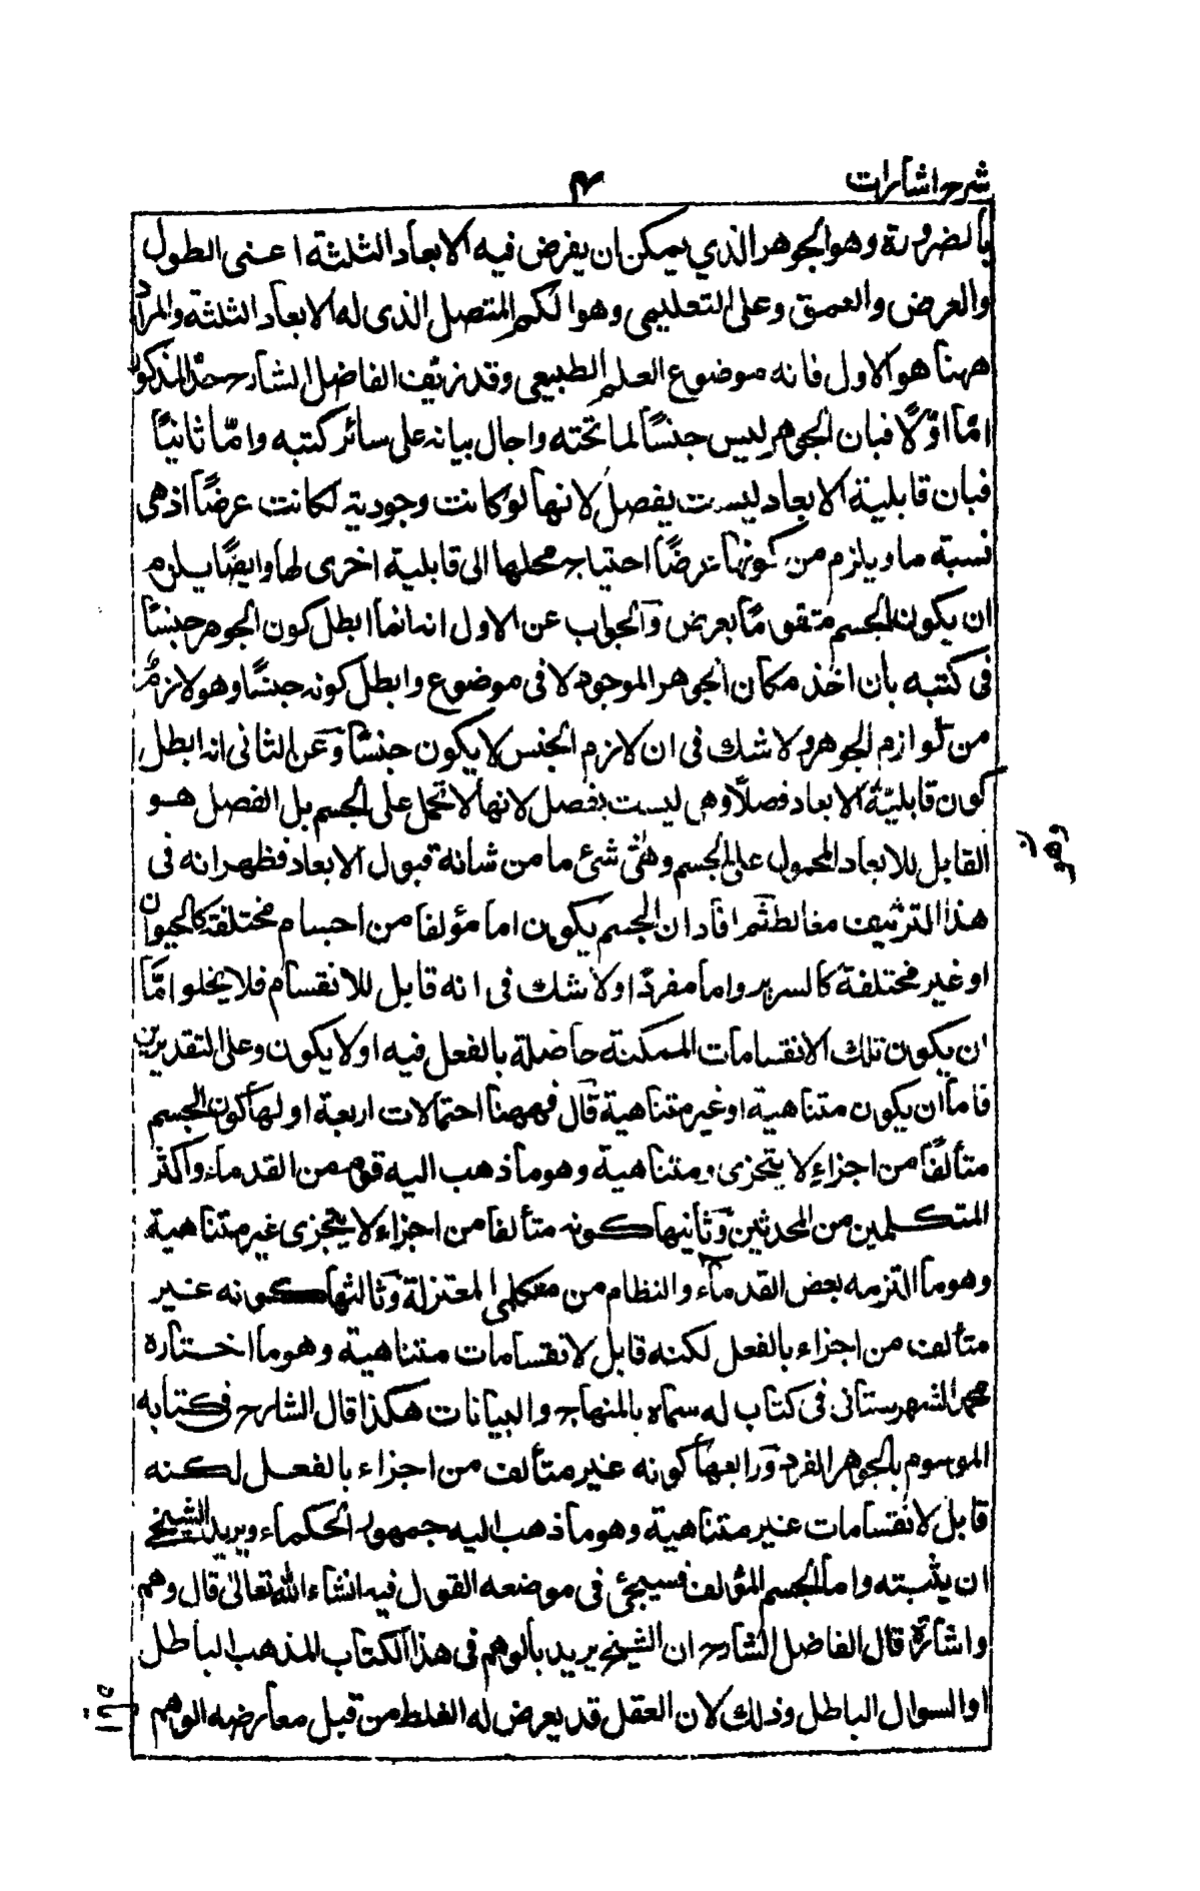 شرح اشارات
٤
بالضرورة وهو الجوهر الذي يمكن ان يفرض فيه الابعاد الثلثة اعنى الطول
والعرض والعمق وعلى التعليمي وهو الكم المتصل الذى له الابعاد الثلثة والمراد
ههنا هو الاول فانه موضوع العلم الطبيعي وقد زيّف الفاضل الشارح حدّ المذكور
امّا اوّلًا فبان الجوهر ليس جنسًا لما تحته واحال بيانه على سائر كتبه وامّا ثانيًا
فبان قابلية الابعاد ليست بفصل لانها لو كانت وجودية لكانت عرضًا اذ هى
نسبة ما ويلزم من كونها عرضًا احتياج محلها الى قابلية اخرى لها وايضًا يلزم
ان يكون الجسم متقومًا بعرض والجواب عن الاول انه انما ابطل كون الجوهر جنسًا
فى كتبه بان اخذ مكان الجوهر الموجود لا فى موضوع وابطل كونه جنسًا وهو لازم
من لوازم الجوهر ولا شك فى ان لازم الجنس لا يكون جنسًا وعن الثانى انه ابطل
كون قابليّة الابعاد فصلًا وهى ليست بفصل لانها لا تحمل على الجسم بل الفصل هو
القابل للابعاد المحمول على الجسم وهى شئ ما من شانه قبول الابعاد فظهر انه فى
هذا التزييف مغالط ثم افاد ان الجسم يكون اما مؤلفا من اجسام مختلفة كالحيوان
او غير مختلفة كالسرير واما مفردًا ولا شك فى انه قابل للانقسام فلا يخلوا امّا
ان يكون تلك الانقسامات الممكنة حاصلة بالفعل فيه او لا يكون وعلى التقديرين
فاما ان يكون متناهية او غير متناهية قال فههنا احتمالات اربعة اولها كون الجسم
متألفًا من اجزاءٍ لا يتجزى ومتناهية وهو ما ذهب اليه قوم من القدماء واكثر
المتكلمين من المحدثين وثانيها كونه متألفا من اجزاء لا يتجزى غير متناهية
وهو ما التزمه بعض القدماء والنظام من متكلمى المعتزلة وثالثها كونه غير
متألف من اجزاء بالفعل لكنه قابل لانقسامات متناهية وهو ما اختاره
محمد الشهرستانى فى كتاب له سماه بالمنهاج والبيانات هكذا قال الشارح فى كتابه
الموسوم بالجوهر الفرد ورابعها كونه غير متألف من اجزاء بالفعل لكنه
قابل لانقسامات غير متناهية وهو ما ذهب اليه جمهور الحكماء ويريد الشيخ
ان يثبته واما الجسم المؤلف فسيجئ فى موضعه القول فيه انشاء الله تعالى قال وهم
واشارة قال الفاضل الشارح ان الشيخ يريد بالوهم فى هذا الكتاب المذهب الباطل
او السوال الباطل وذلك لان العقل قد يعرض له الغلط من قبل معارضه الوهم